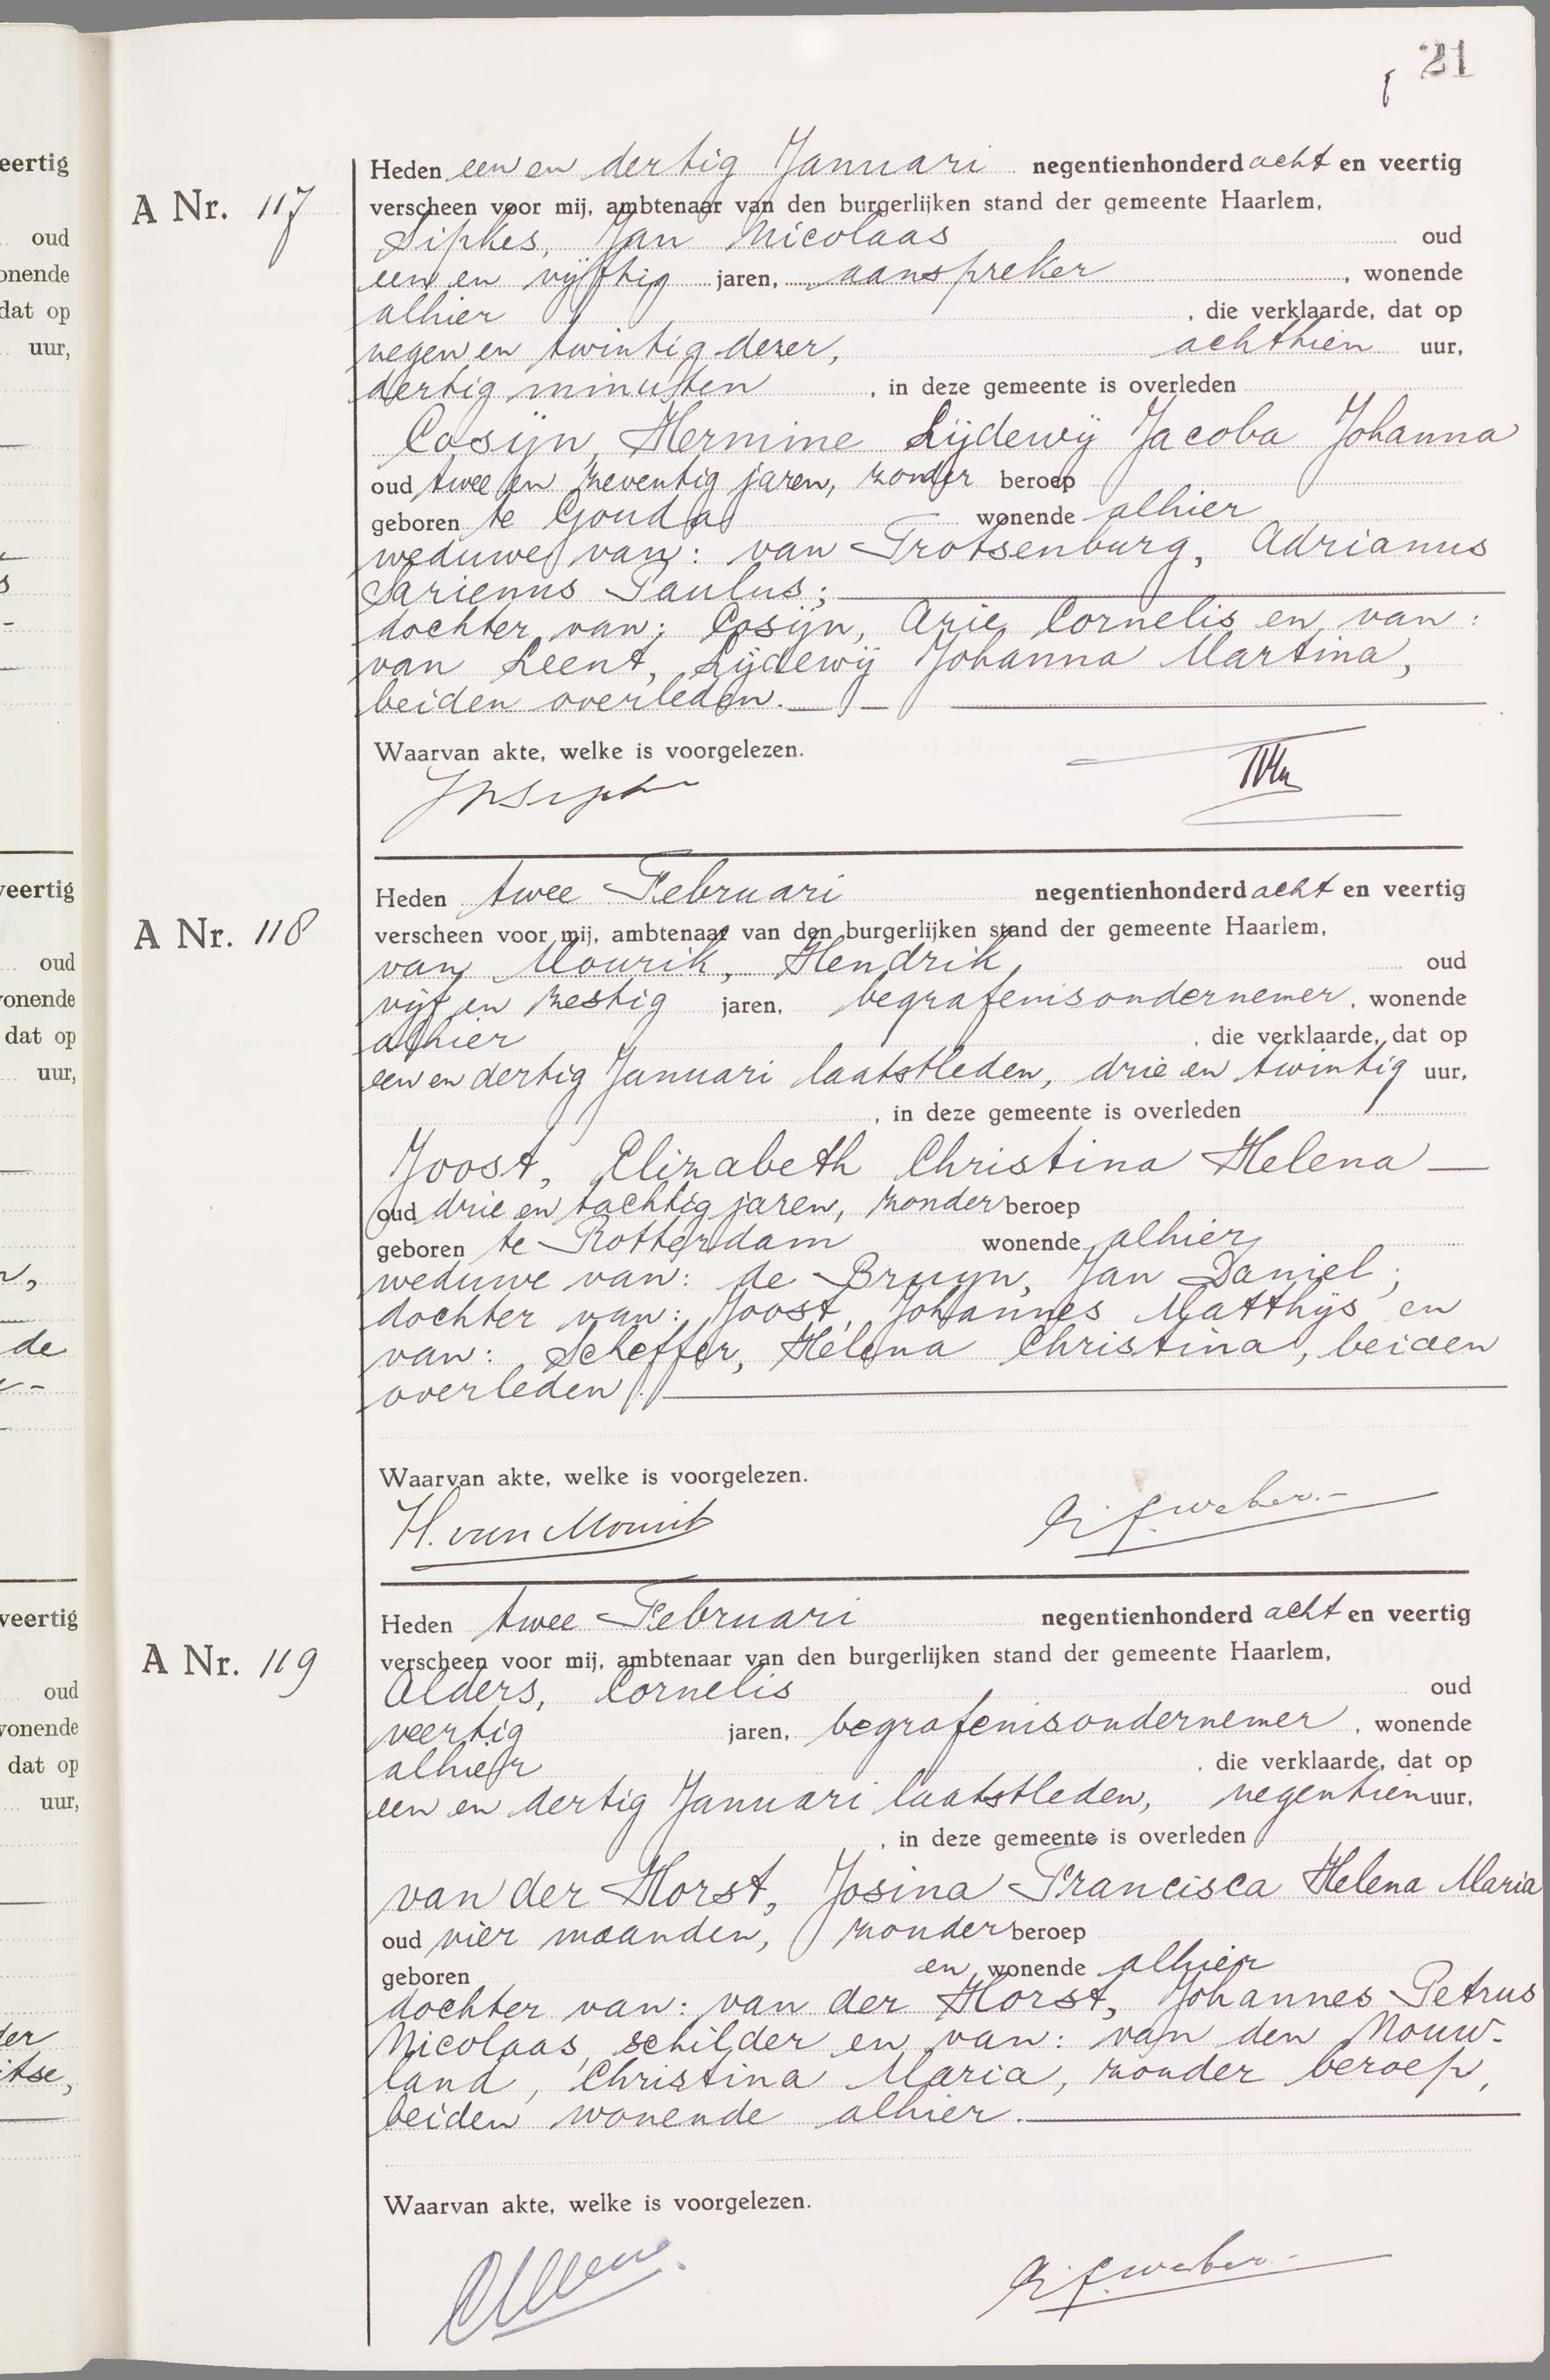 21
A Nr. 117
Heden een en dertig Januari negentienhonderd acht en veertig
verscheen voor mij, ambtenaar van den burgerlijken stand der gemeente Haarlem,
Sipkes, Jan Nicolaas oud
een en vijftig jaren, aanspreker, wonende
alhier, die verklaarde, dat op
negen en twintig dezer, achttien uur,
dertig minuten, in deze gemeente is overleden
Cosijn, Hermine Lijdewij Jacoba Johanna
oud twee en zeventig jaren, zonder beroep
geboren te Gouda wonende alhier
weduwe van: van Trotsenburg, Adrianus
Sarienus Paulus;
dochter van: Cosijn, Arie Cornelis en van:
van Leent, Lijdewij Johanna Martina,
beiden overleden.
Waarvan akte, welke is voorgelezen.
A Nr. 118
Heden twee Februari negentienhonderd acht en veertig
verscheen voor mij, ambtenaar van den burgerlijken stand der gemeente Haarlem,
van Mourik, Hendrik, oud
vijf en zestig jaren, begrafenisondernemer, wonende
alhier, die verklaarde, dat op
een en dertig Januari laatstleden, drie en twintig uur,
, in deze gemeente is overleden
Joost, Elizabeth Christina Helena
oud drie en tachtig jaren, zonder beroep
geboren te Rotterdam wonende alhier,
weduwe van: de Bruyn, Jan Daniel;
dochter van: Joost, Johannes Matthijs en
van: Scheffer, Helena Christina, beiden
overleden.
Waarvan akte, welke is voorgelezen.
H. van Mourik weber.-
A Nr. 119
Heden twee Februari negentienhonderd acht en veertig
verscheen voor mij, ambtenaar van den burgerlijken stand der gemeente Haarlem,
Alders, Cornelis oud
veertig jaren, begrafenisondernemer, wonende
alhier, die verklaarde, dat op
een en dertig Januari laatstleden, negentien uur,
, in deze gemeente is overleden
van der Horst, Josina Francisca Helena Maria
oud vier maanden, zonder beroep
geboren en wonende alhier
dochter van: van der Horst, Johannes Petrus
Nicolaas, schilder en van: van den Nouw-
land, Christina Maria, zonder beroep,
beiden wonende alhier.
Waarvan akte, welke is voorgelezen.
weber-